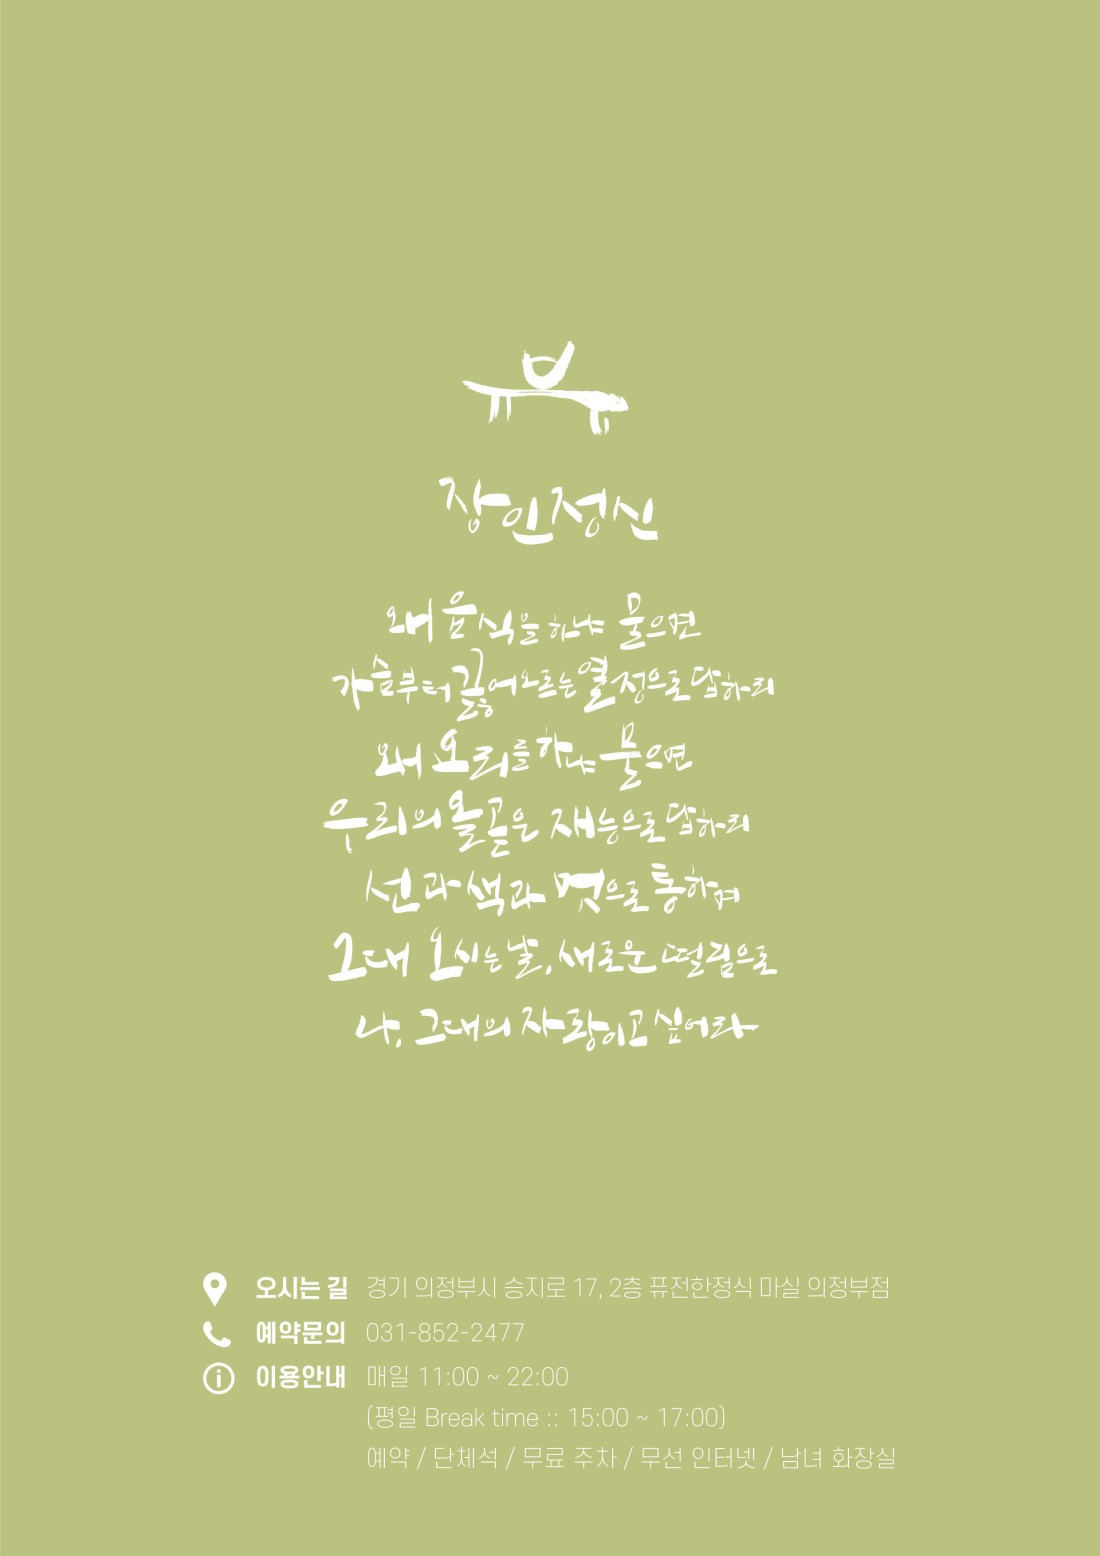 장인정신
왜 음식을 하냐 물으면
가슴부터 끓어오르는 열정으로 답하리
왜 오리를 하냐 물으면
우리의 올곧은 재능으로 답하리
선과 색과 멋으로 통하며
그대 오시는 날, 새로운 떨림으로
나, 그대의 자랑이고 싶어라
오시는 길 경기 의정부시 승지로 17, 2층 퓨전한정식 마실 의정부점
예약문의 031-852-2477
이용안내 매일 11:00 ~ 22:00
(평일 Break time :: 15:00 ~ 17:00)
예약 / 단체석 / 무료 주차 / 무선 인터넷 / 남녀 화장실